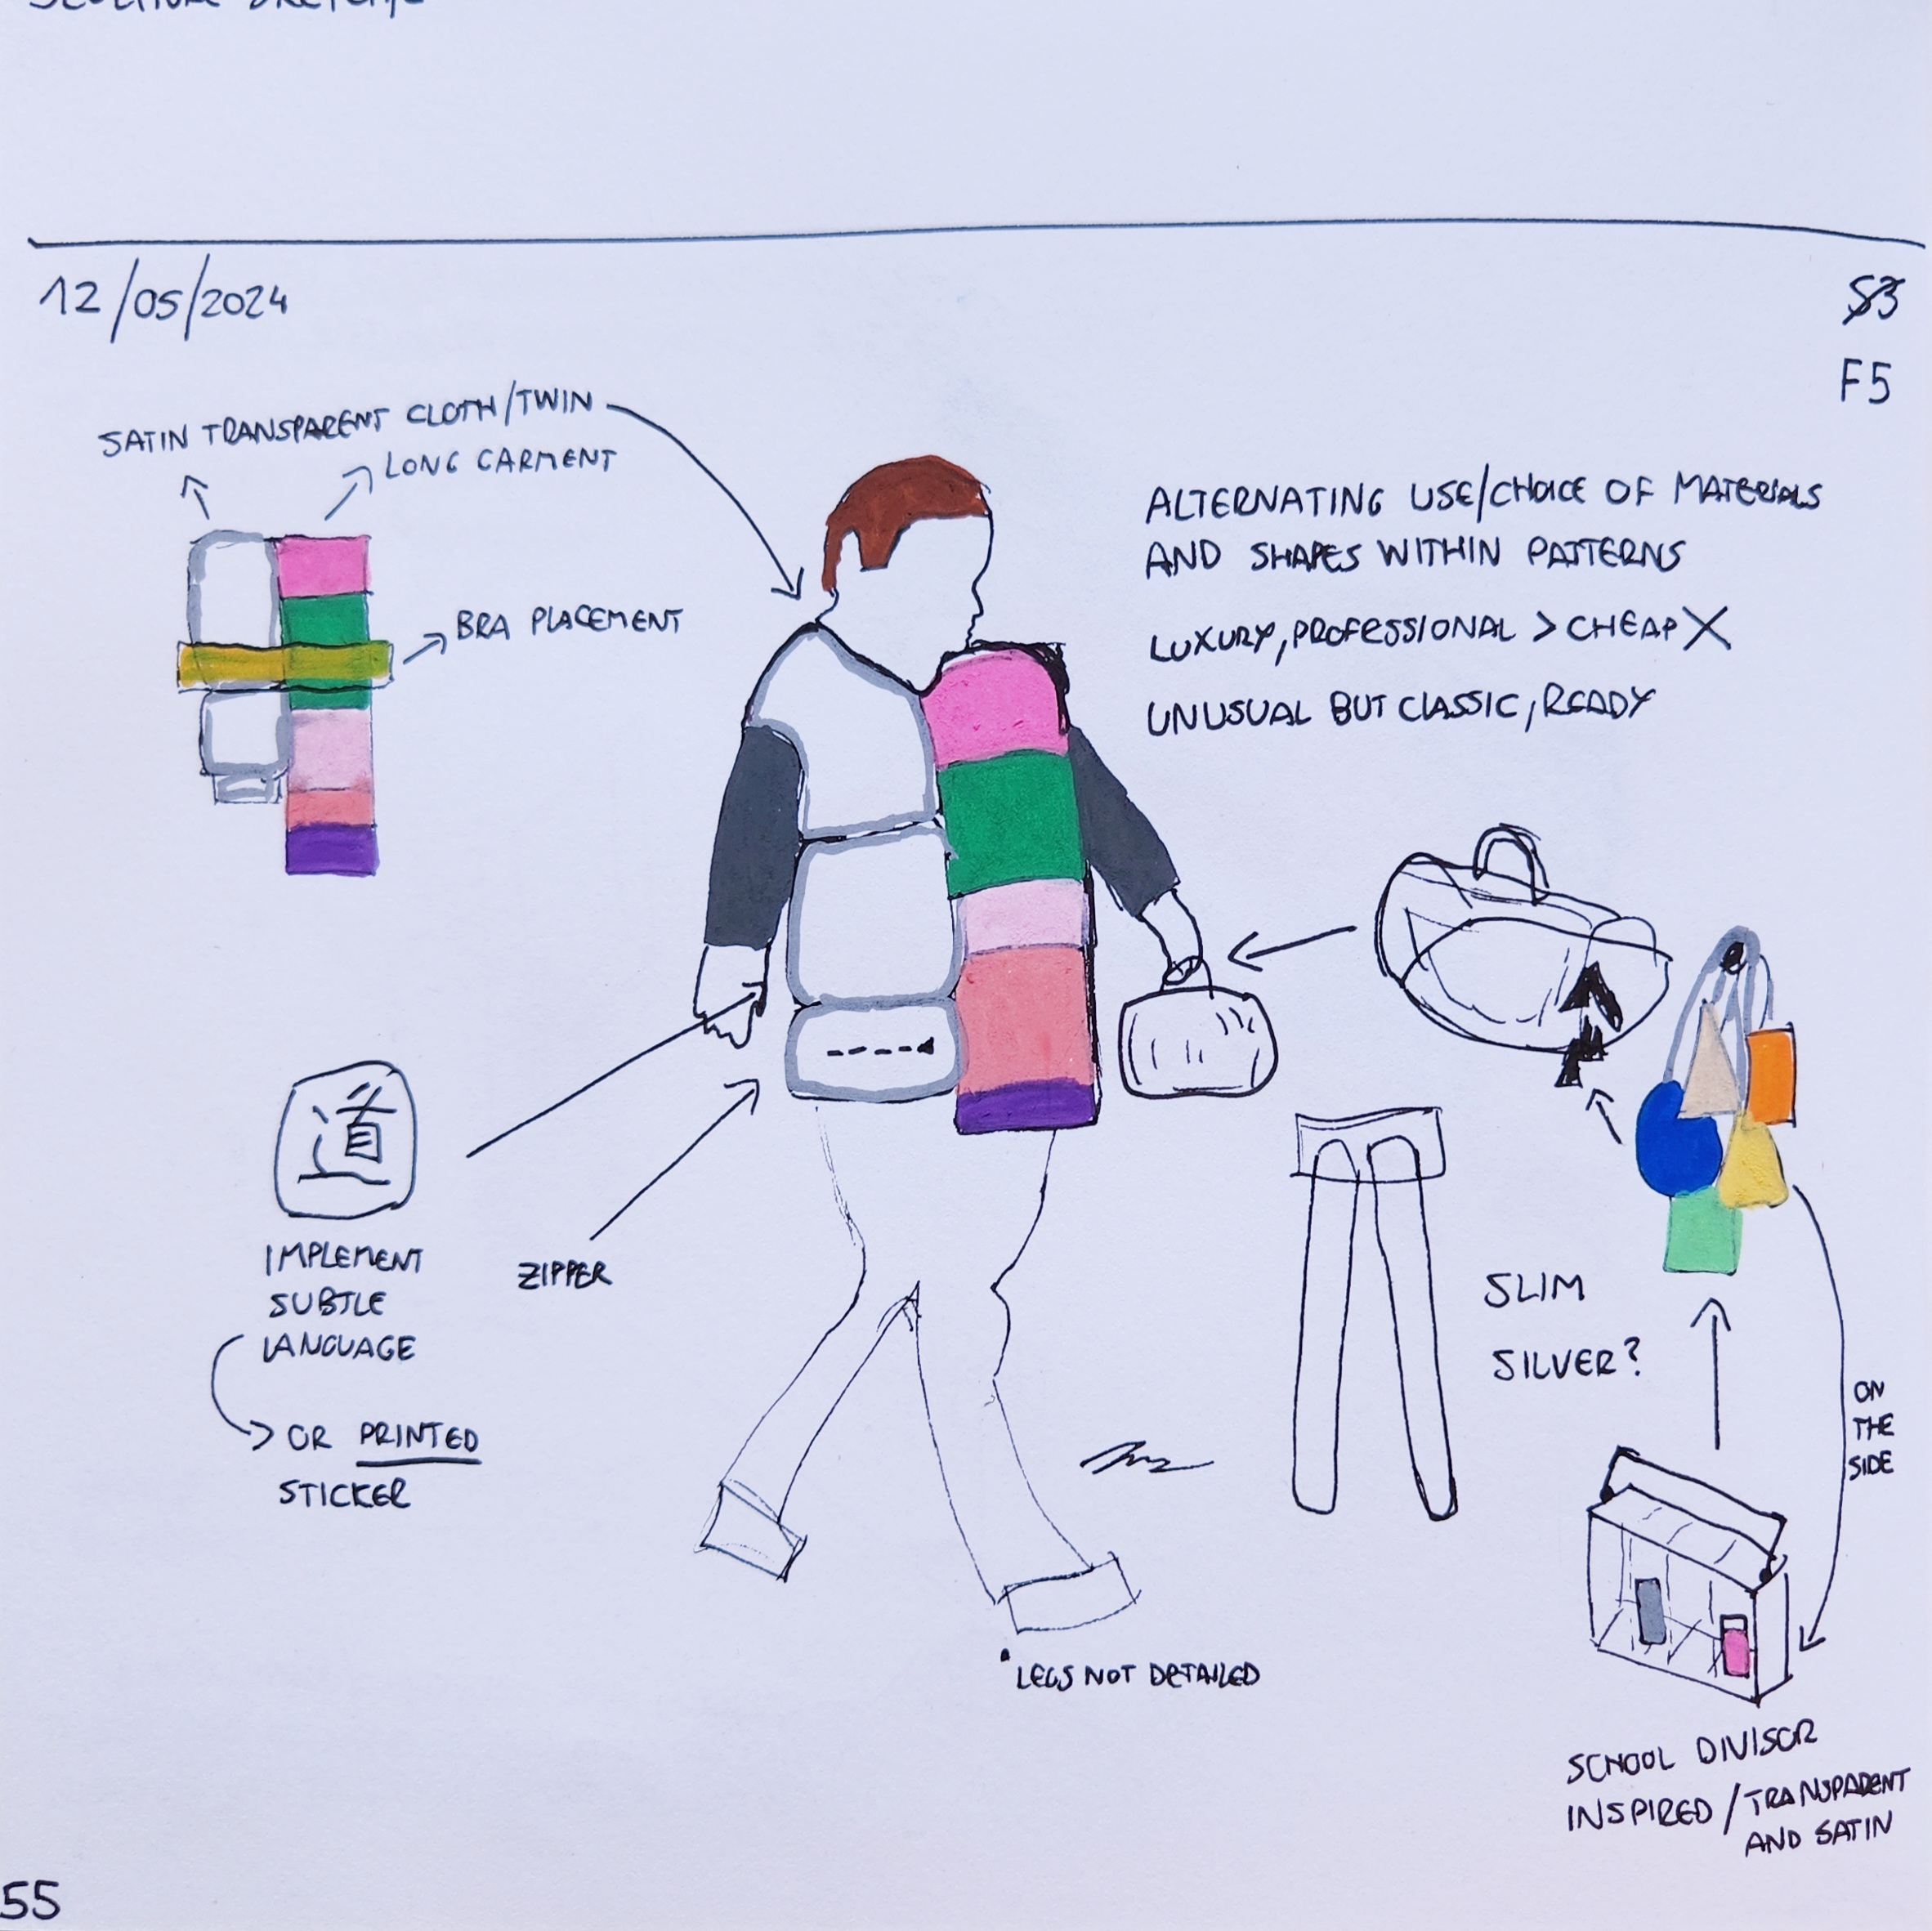 12/05/2024
F5
SATIN TRANSPARENT CLOTH/TWIN
LONG GARMENT
BRA PLACEMENT
ALTERNATING USE/CHOICE OF MATERIALS
AND SHAPES WITHIN PATTERNS
LUXURY, PROFESSIONAL > CHEAP X
UNUSUAL BUT CLASSIC, READY
道
IMPLEMENT
SUBTLE
LANGUAGE
OR PRINTED
STICKER
ZIPPER
SLIM
SILVER?
ON
THE
SIDE
•LEGS NOT DETAILED
SCHOOL DIVISOR
INSPIRED / TRANSPARENT
AND SATIN
55